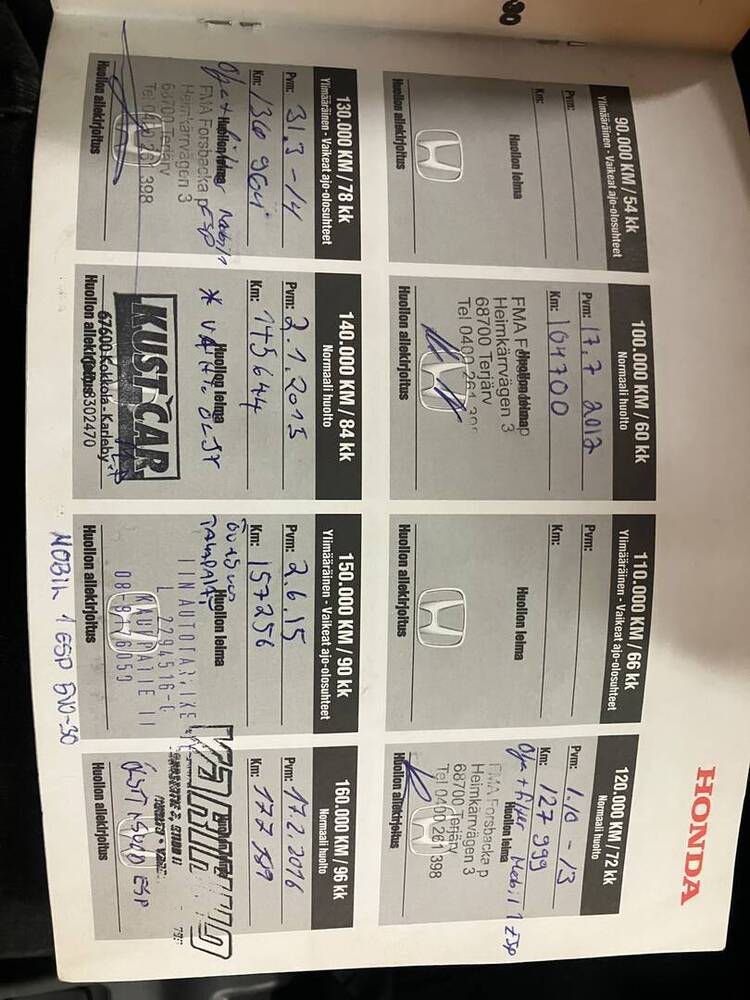 HONDA
90.000 KM / 54 kk
Ylimääräinen - Vaikeat ajo-olosuhteet
Pvm:
Km:
Huollon leima
Huollon allekirjoitus
100.000 KM / 60 kk
Normaali huolto
Pvm: 17.7 2012
Km: 104700
Huollon leima
FMA F
Heimkärnvägen 3
68700 Terjärv
Tel 0400 261
Huollon allekirjoitus
110.000 KM / 66 kk
Ylimääräinen - Vaikeat ajo-olosuhteet
Pvm:
Km:
Huollon leima
Huollon allekirjoitus
120.000 KM / 72 kk
Normaali huolto
Pvm: 1.10 -13
Km: 127 999
Mobil 1 ESP
Huollon leima
FMA Forsbacka p
Heimkärnvägen 3
68700 Terjärv
Tel 0400 261 398
Huollon allekirjoitus
130.000 KM / 78 kk
Ylimääräinen - Vaikeat ajo-olosuhteet
Pvm: 31.3 -14
Km: 136 964
Mobil 1
ESP
Huollon leima
FMA Forsbacka p
Heimkärnvägen 3
68700 Terjärv
Tel 0400 261 398
Huollon allekirjoitus
140.000 KM / 84 kk
Normaali huolto
Pvm: 2.1.2015
Km: 145644
Huollon leima
KUST CAR
67600 Kokkola - Karleby
8302470
Huollon allekirjoitus
150.000 KM / 90 kk
Ylimääräinen - Vaikeat ajo-olosuhteet
Pvm: 2.6.15
Km: 157256
Huollon leima
IIN AUTOTARVIKE
Huollon allekirjoitus
MOBIL 1 ESP 5W-30
160.000 KM / 96 kk
Normaali huolto
Pvm: 17.2.2016
Km:
ESP
Huollon allekirjoitus